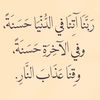 رَبَّنَا آتِنَا فِي الدُّنْيَا حَسَنَةً،
وَفِي الْآخِرَةِ حَسَنَةً،
وَقِنَا عَذَابَ النَّارِ.